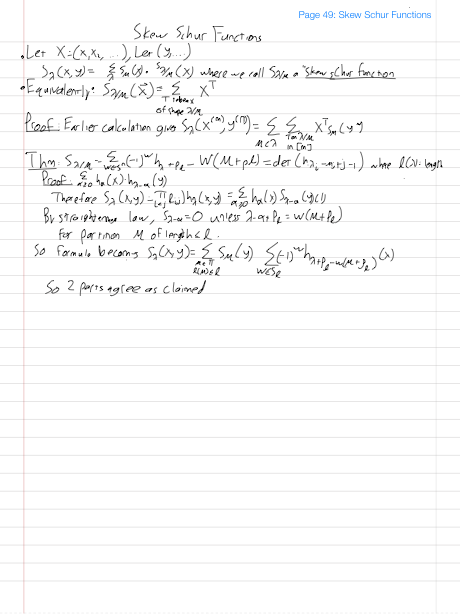 Page 49: Skew Schur Functions
Skew Schur Functions
• Let X=(x₁,x₂,...), Let (y,...)
S_λ(x,y) = Σ_λ S_μ(y)· S_λ/μ(x) where we call S_λ/μ a skew schur function
• Equivalently: S_λ/μ(x⃗) = Σ_{T tableaux of shape λ/μ} X^T
Proof: Earlier calculation gives S_λ(x^(m), y^(n)) = Σ_{μ⊂λ} Σ_{T on λ/μ in [m]} X^T S_μ(y
Thm: S_λ/μ - Σ_{w∈S} (-1)^w h_λ+ρ_ℓ - W(μ+ρℓ) = det(h_{λ_i-μ_j+j-1}) where ℓ(λ): length
Proof: Σ_{α≥0} h_α(x)·h_{λ-α}(y)
Therefore S_λ(x,y) - Π_{i<j} h_λ(x,y) = Σ_{α≥0} h_α(x) S_{λ-α}(y)
By straightening law, S_{λ-α}=0 unless λ-α+ρ_ℓ = w(μ+ρ_ℓ)
for partition μ of length ≤ ℓ.
So Formula becomes S_λ(x,y) = Σ_{ℓ(μ)≤ℓ} S_μ(y) Σ_{w∈S_ℓ} (-1)^w h_{λ+ρ_ℓ-w(μ+ρ_ℓ)}(x)
So 2 parts agree as claimed